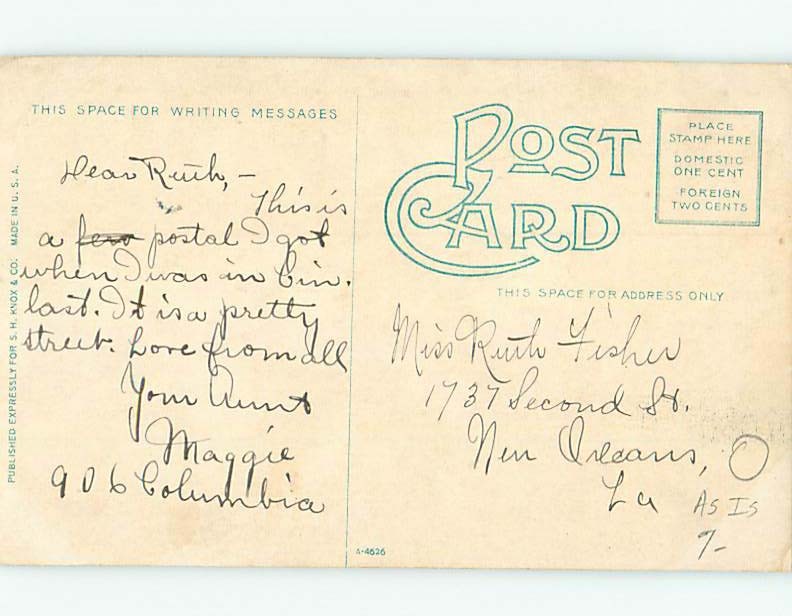 THIS SPACE FOR WRITING MESSAGES
Dear Ruth, –
This is
a few postal I got
when I was in Cin.
last. It is a pretty
street. Love from all
Your Aunt
Maggie
906 Columbia
PUBLISHED EXPRESSLY FOR S. H. KNOX & CO. MADE IN U. S. A.
POST
CARD
PLACE
STAMP HERE
DOMESTIC
ONE CENT
FOREIGN
TWO CENTS
THIS SPACE FOR ADDRESS ONLY
Miss Ruth Fisher
1737 Second St.
New Orleans,
La
AS IS
7-
A-4626